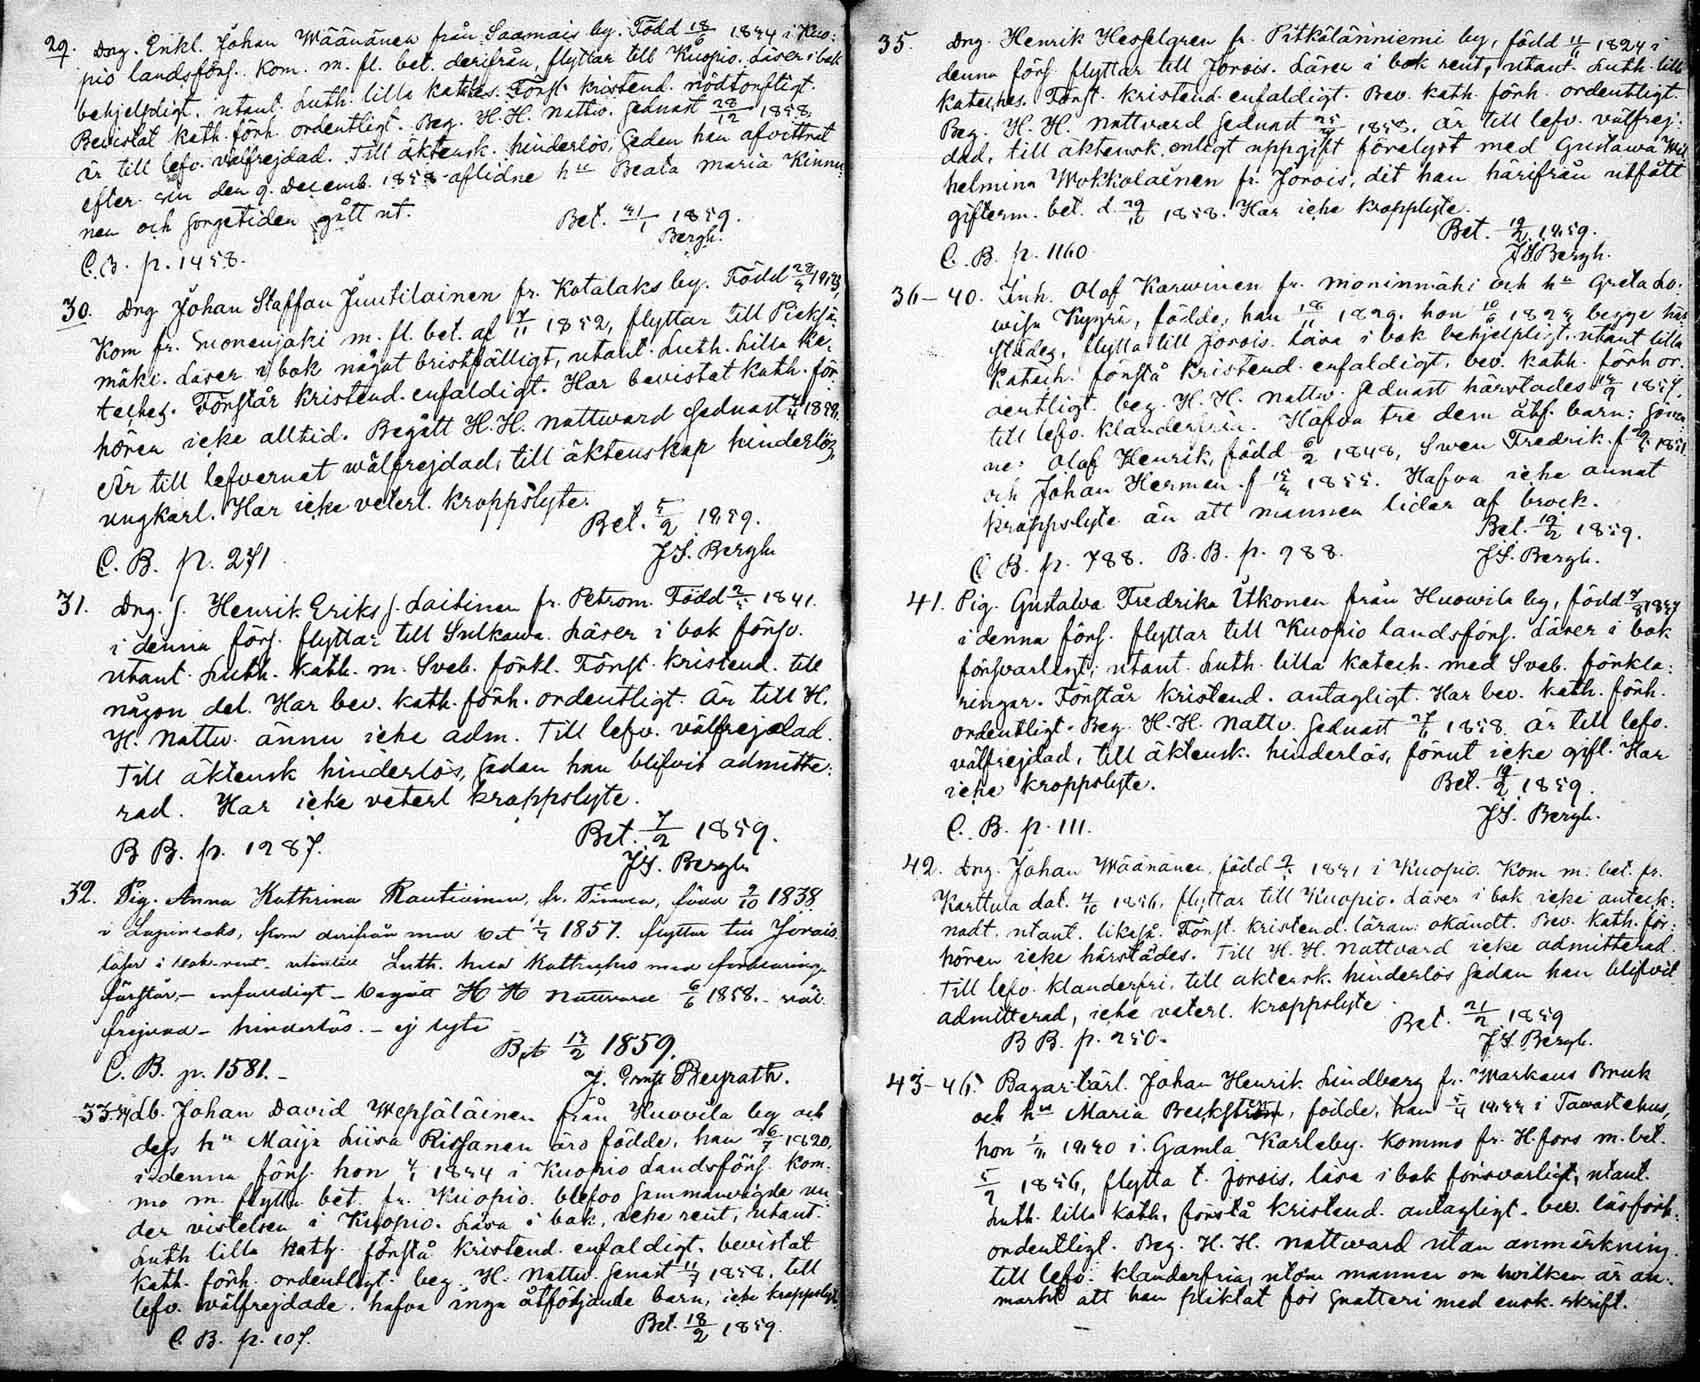 29. Dng. Enkl. Johan Wäänänen från Saamais by. Född 18/2 1824 i Kuo:
pio landsförs. Kom. m. fl. bet. derifrån, flyttar till Kuopio. Läser i bok
behjelpligt, utant. Luth. lilla kateches. Först. kristend. nödtorftigt.
Bevistat kath. förh. ordentligt. Beg. H. H. Nattv. sednast 28/12 1858.
Är till lefv. välfrejdad. Till äktensk. hinderlös, sedan han afvittrat
efter sin den 9. Decemb. 1858 aflidne hu Beata Maria Kinnu-
nen och sorgetiden gått ut.
Bet. 31/1 1859.
Bergh.
C. B. p. 1458.
30. Dng Johan Staffan Juutilainen fr. Kotalaks by. Född
Kom fr. m. fl. bet. af 7/11 1852, flyttar till Pieksä-
mäki. Läser i bok något bristfälligt, utant. Luth. lilla ka-
teches. Förstår kristend. enfaldigt. Har bevistat kath. för
hören icke alltid. Begått H. H. Nattvard sednast
Är till lefvernet wälfrejdad, till äktenskap hinderlös,
ungkarl. Har icke veterl. kroppslyte.
Bet. 5/2 1859.
J. S. Bergh
C. B. p. 271
31. Dng. s. Henrik Eriks s. Laitinen fr. Petrom. Född 1841
i denna förs. flyttar till Sulkawa. Läser i bok försv.
utant. Luth. kath. m. Sveb. förkl. Först. kristend. till
någon del. Har bev. kath. förh. ordentligt. Är till H.
H. Nattv. ännu icke adm. Till lefv. välfrejdad.
Till äktensk hinderlös, sedan han blifvit admitte:
rad. Har icke veterl kroppslyte.
Bet. 7/2 1859.
J. S. Bergh
B. B. p. 1287.
32. Pig. Anna Kathrina Rautiainen, fr. född 9/10 1838
i Lapinlaks, kom derifrån med bet 1857. flyttar till Jorois
läser i bok rent utantill Luth. lilla Kathechis med förklaring.
förstår – enfaldigt – begått H H Nattvard 6/6 1858. – väl
frejdad – hinderlös. – ej lyte
Bet 17/2 1859.
J. Ernst Peyrath.
C. B. p. 1581. –
33-34. Lb. Johan David Wepsäläinen från Huovila by och
dess hu Maija Liisa Rissanen äro födde, han 26/7 1820,
i denna förs. hon 1824 i Kuopio Landsförs. Kom-
mo m. flytta bet. fr. Kuopio. blefvo sammanvigda un-
der vistelsen i Kuopio. Läsa i bok, icke rent, utant.
Luth lilla kath. förstå kristend. enfaldigt, bevistat
kath. förh. ordentligt. beg. H. Nattv. senast 11/7 1858. till
lefv. wälfrejdade. hafva inga åtföljande barn, icke kroppslyt.
Bet. 18/2 1859.
C. B. p. 107.
35. Dng. Henrik Hesselgren fr. Pitkälänniemi by, född 11/11 1824 i
denna förs. flyttar till Jorois. Läser i bok rent, utant. Luth. lilla
kateches. Först. kristend. enfaldigt. Bev. kath. förh. ordentligt.
Beg. H. H. Nattvard sednast 1858, är till lefv. välfrej-
dad, till äktensk. enligt uppgift förelyst med Gustawa Wil
helmina Wokkolainen fr. Jorois, dit han härifrån utfått
gifterm. bet. d. 1858. Har icke kroppslyte.
Bet. 19/2 1859.
J S Bergh.
C. B. p. 1160.
36–40. Inh. Olof Karwinen fr. Moninmäki och hu Greta Lo-
wisa Kyyrä, födde, han 18/11 1829. hon 10/6 1823 begge här
städes, flytta till Jorois. Läsa i bok behjelpligt, utant lilla
katech. förstå kristend. enfaldigt, bev. kath. förh or-
dentligt. beg. H. H. Nattv. sednast härstädes
till lefv. klanderfria. Hafva tre dem åtf. barn: söner-
ne: Olof Henrik, född 6/2 1848, Swen Fredrik f. 1851
och Johan Herman f 1855. Hafva icke annat
kroppslyte än att mannen lider af brock.
Bet. 19/2 1859.
J. S. Bergh.
C. B. p. 788. B. B. p. 988.
41. Pig. Gustawa Fredrika Utkonen från Huowila by, född
i denna förs. flyttar till Kuopio landsförs. Läser i bok
försvarligt, utant. Luth. lilla katech. med Sveb. förkla:
ringar. Förstår kristend. antagligt. Har bev. kath. förh.
ordentligt. Beg. H. H. Nattv. sednast 1858. Är till lefv.
välfrejdad, till äktensk. hinderlös, förut icke gift. Har
icke kroppslyte.
Bet. 19/2 1859.
J. S. Bergh.
C. B. p. 111.
42. Dng. Johan Wäänänen, född 1831 i Kuopio. Kom m. bet. fr.
Karttula dat. 4/10 1856, flyttar till Kuopio. Läser i bok icke anteck:
nadt, utant. likeså. Först. kristend. läran: okändt. Bev. kath. för:
hören icke härstädes. Till H. H. Nattvard icke admitterad
Till lefv. klanderfri, till äktensk. hinderlös sedan han blifvit
admitterad, icke veterl. kroppslyte
Bet. 21/2 1859
J. S. Bergh.
B B. p. 250.
43–46. Bagar-lärl. Johan Henrik Lindberg fr. Warkaus Bruk
och hu Maria Beckström, födde, han i Tawastehus,
hon i Gamla Karleby. Kommo fr. H.fors m. bet.
5/7 1856, flytta t. Jorois, läsa i bok försvarligt, utant.
Luth. lilla kath, förstå kristend. antagligt. bev. läsförh:
ordentligt. Beg. H. H. Nattvard utan anmärkning.
till lefv. klanderfria, utom mannen om hvilken är an-
märkt att han pliktat för snatteri med ensk. skrift.